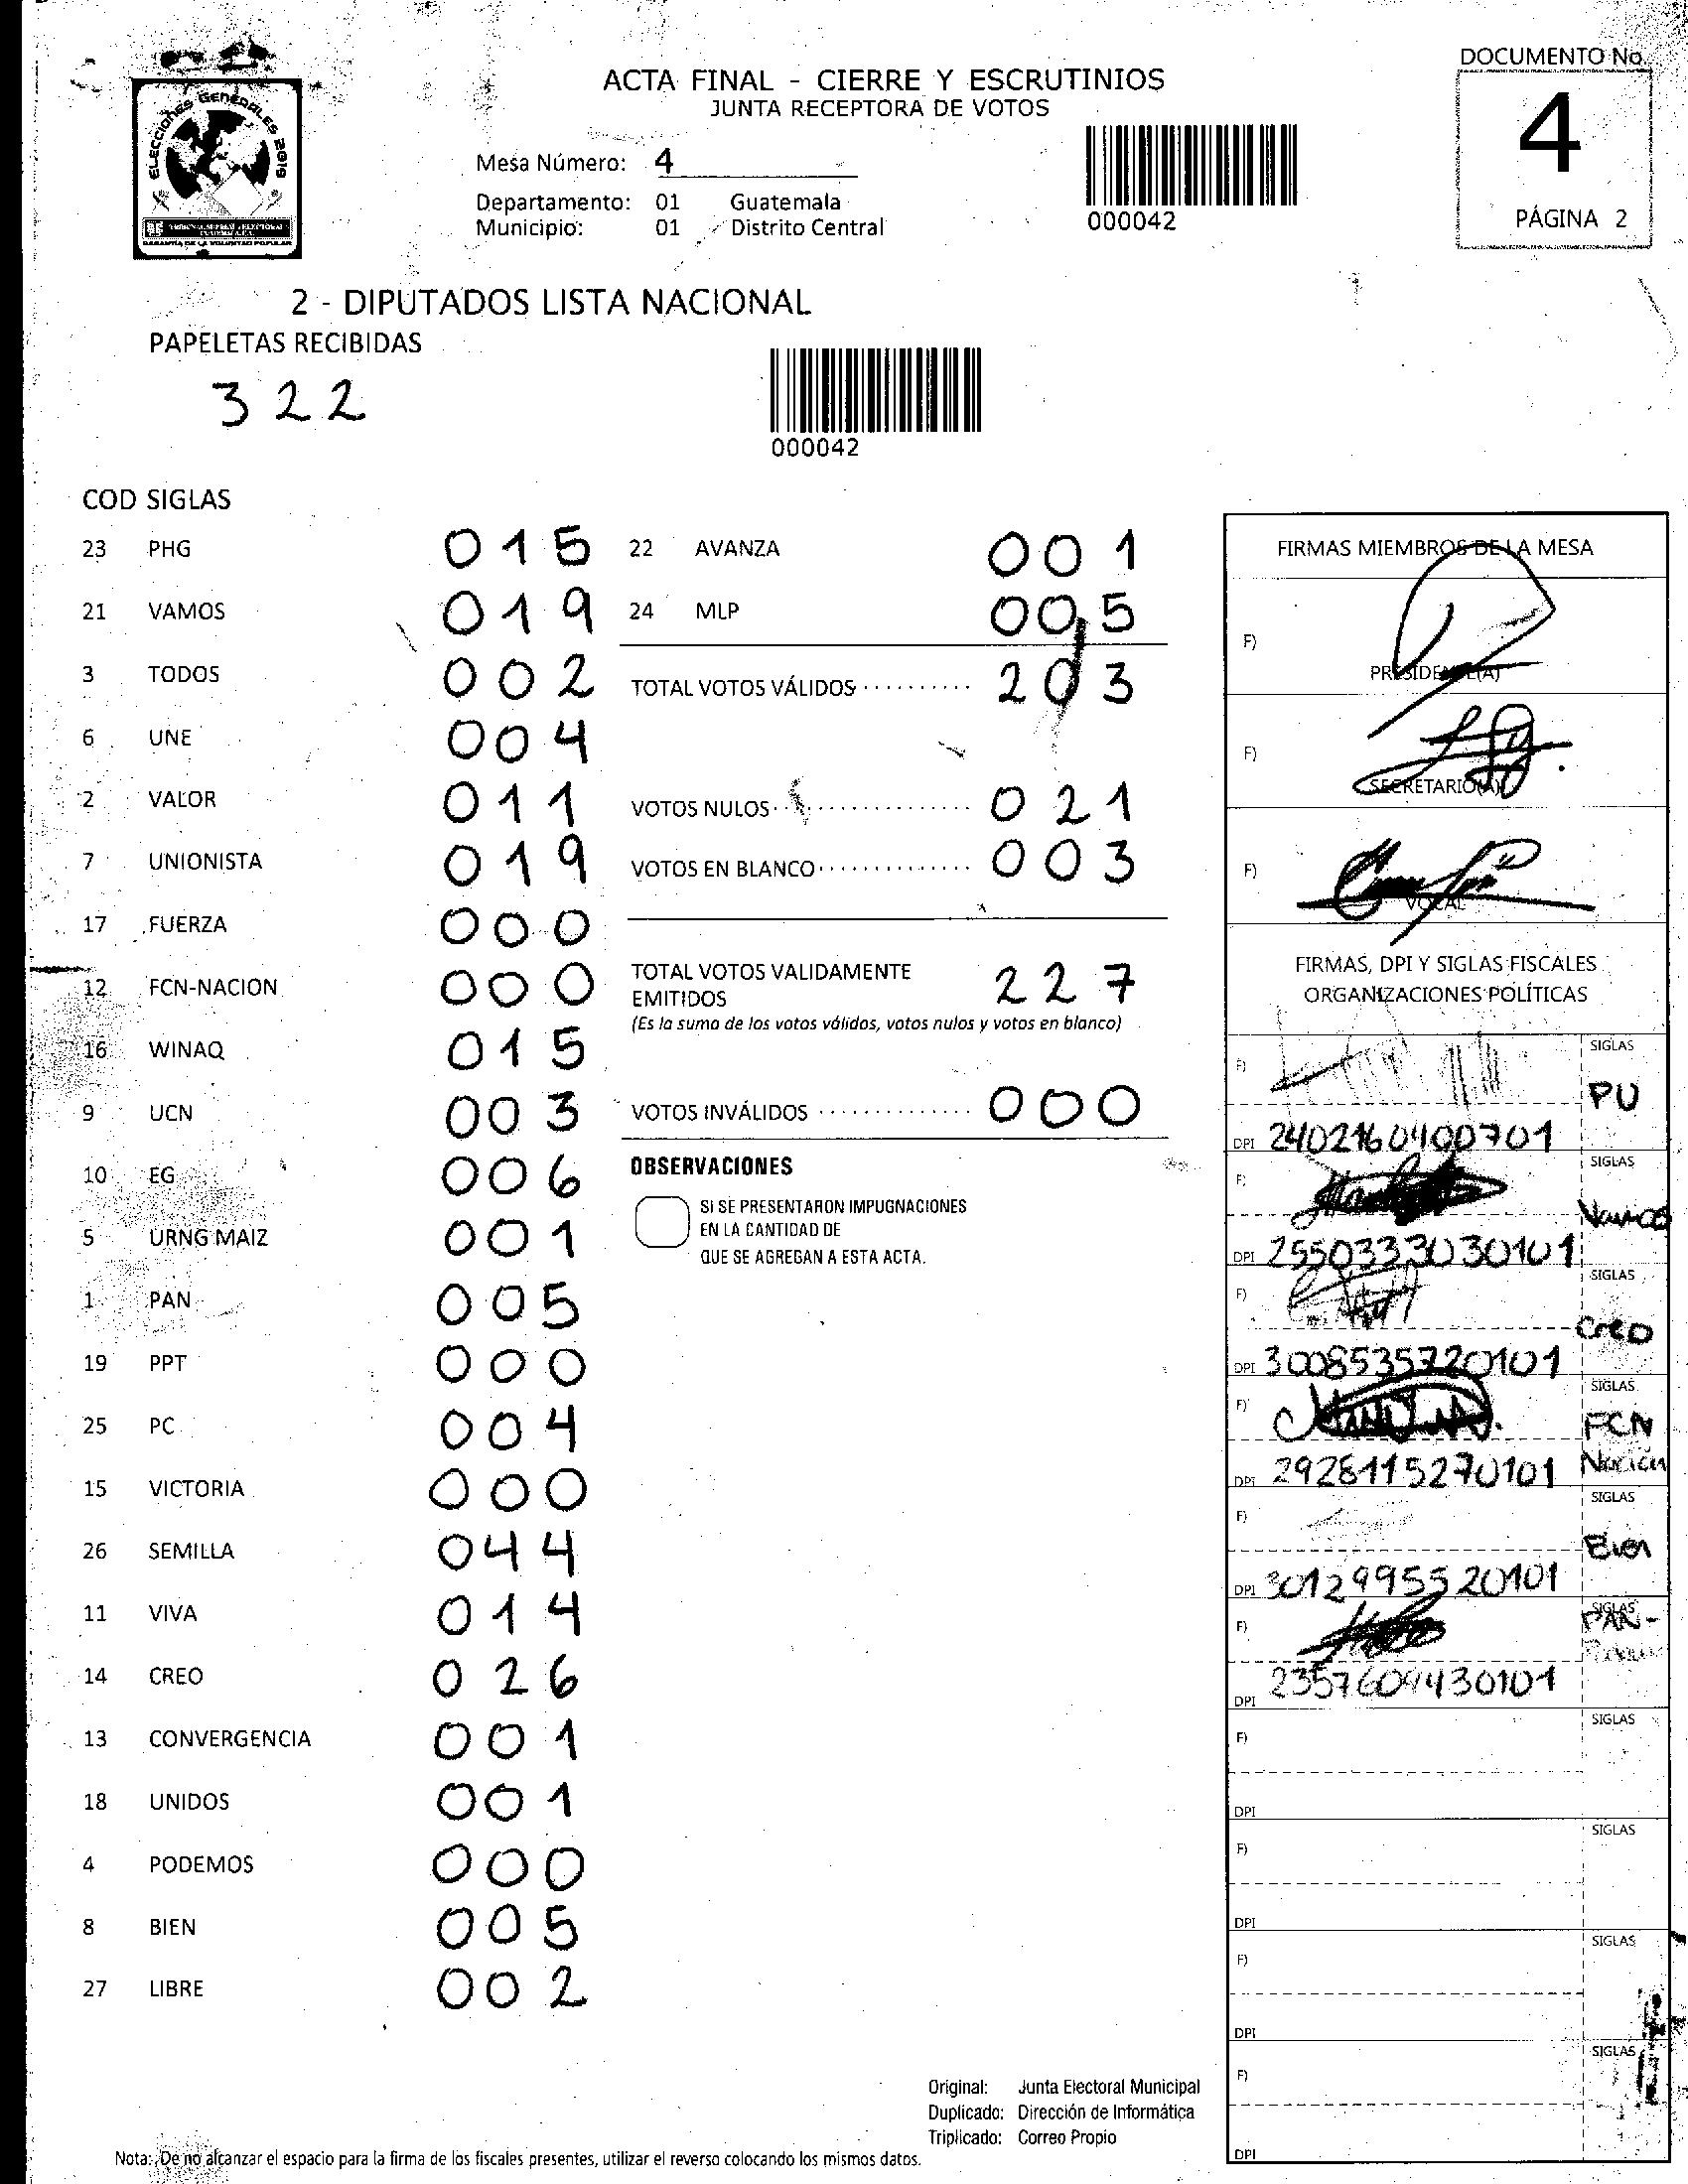 DOCUMENTO No.
4
PÁGINA 2
ELECCIONES GENERALES 2019
TRIBUNAL SUPREMO ELECTORAL
GARANTÍA DE LA VOLUNTAD POPULAR
ACTA FINAL - CIERRE Y ESCRUTINIOS
JUNTA RECEPTORA DE VOTOS
Mesa Número: 4
Departamento: 01 Guatemala
Municipio: 01 Distrito Central
000042
2 - DIPUTADOS LISTA NACIONAL
PAPELETAS RECIBIDAS
322
000042
COD SIGLAS
23 PHG 015
21 VAMOS 019
3 TODOS 002
6 UNE 004
2 VALOR 011
7 UNIONISTA 019
17 FUERZA 000
12 FCN-NACION 000
16 WINAQ 015
9 UCN 003
10 EG 006
5 URNG MAIZ 001
1 PAN 005
19 PPT 000
25 PC 004
15 VICTORIA 000
26 SEMILLA 044
11 VIVA 014
14 CREO 026
13 CONVERGENCIA 001
18 UNIDOS 001
4 PODEMOS 000
8 BIEN 005
27 LIBRE 002
22 AVANZA 001
24 MLP 005
TOTAL VOTOS VÁLIDOS .......... 203
VOTOS NULOS .............. 021
VOTOS EN BLANCO .............. 003
TOTAL VOTOS VALIDAMENTE
EMITIDOS 227
(Es la suma de los votos válidos, votos nulos y votos en blanco)
VOTOS INVÁLIDOS .............. 000
OBSERVACIONES
SI SE PRESENTARON IMPUGNACIONES
EN LA CANTIDAD DE
QUE SE AGREGAN A ESTA ACTA.
FIRMAS MIEMBROS DE LA MESA
F)
PRESIDENTE(A)
F)
SECRETARIO(A)
F)
VOCAL
FIRMAS, DPI Y SIGLAS FISCALES
ORGANIZACIONES POLÍTICAS
F) SIGLAS
PU
DPI 2402160400701
F) SIGLAS
Vamos
DPI 2550333030101
F) SIGLAS
Creo
DPI 3008535720101
F) SIGLAS
FCN
Nacion
DPI 2928115270101
F) SIGLAS
Bien
DPI 3012995520101
F) SIGLAS
PAN-
DPI 2357609430101
F) SIGLAS
DPI
F) SIGLAS
DPI
F) SIGLAS
DPI
F) SIGLAS
DPI
Original: Junta Electoral Municipal
Duplicado: Dirección de Informática
Triplicado: Correo Propio
Nota: De no alcanzar el espacio para la firma de los fiscales presentes, utilizar el reverso colocando los mismos datos.